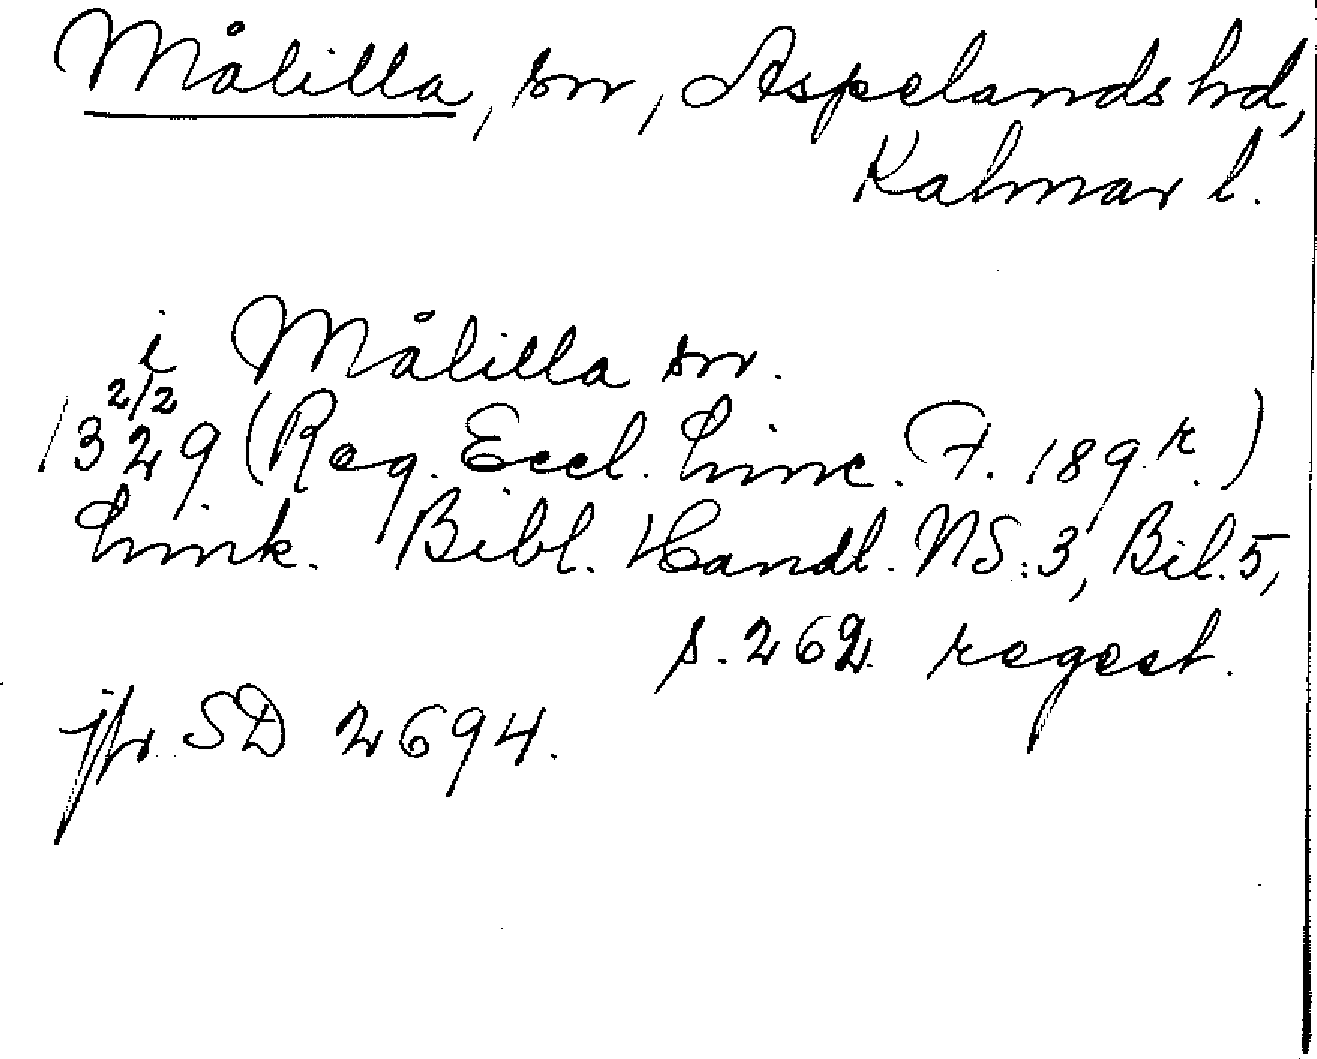 Målilla, sn, Aspelands hd,
Kalmar l.
i Målilla sn.
2/2
1329 (Reg. Eccl. Linc. F. 189 r.)
Link. Bibl. Handl. NS:3, Bil. 5,
s. 262 regest.
jfr SD 2694.